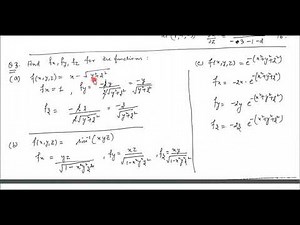 Q3. Find fx, fy, fz for the functions:
(a) f(x,y,z) = x - √(y²+z²)
fx = 1, fy = -2y / 2√(y²+z²) = -y / √(y²+z²)
fz = -2z / 2√(y²+z²) = -z / √(y²+z²)
(b) f(x,y,z) = sin⁻¹(xyz)
fx = yz / √(1-x²y²z²), fy = xz / √(1-x²y²z²), fz = xy / √(1-x²y²z²)
(c) f(x,y,z) = e^-(x²+y²+z²)
fx = -2x · e^-(x²+y²+z²)
fy = -2y e^-(x²+y²+z²)
fz = -2z e^-(x²+y²+z²)